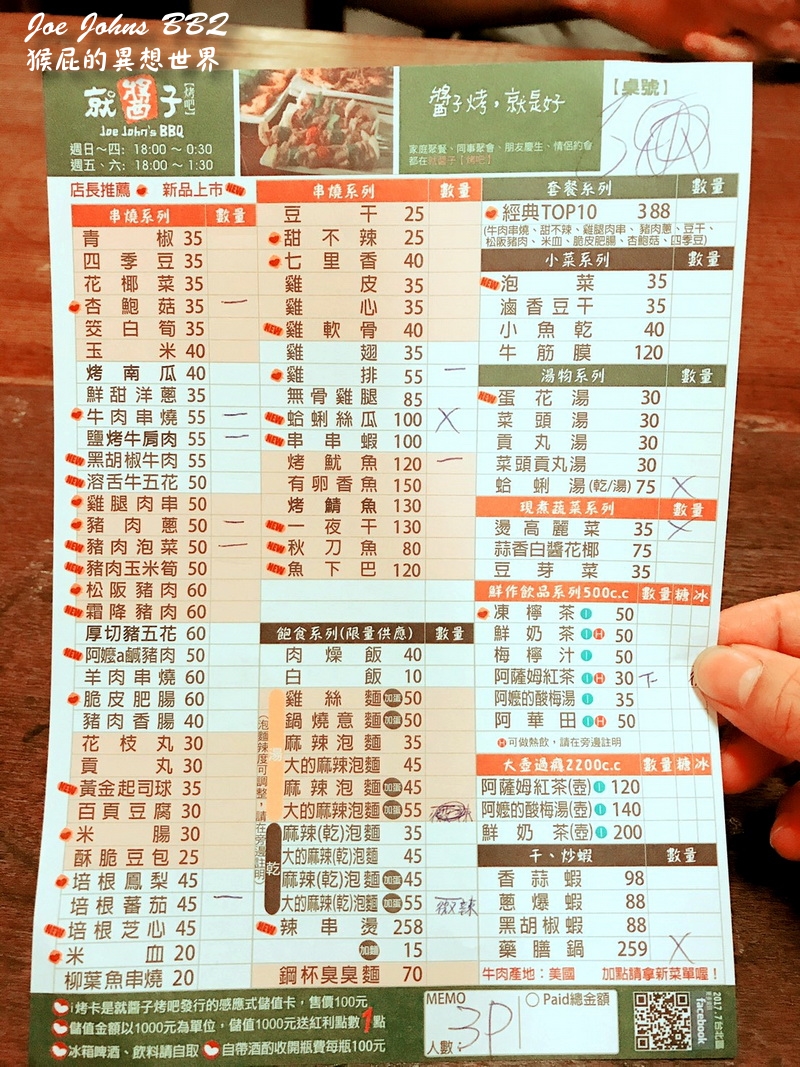 Joe Johns BBQ
猴屁的異想世界
就醬子【烤吧】
Joe John's BBQ
週日～四: 18:00 ～ 0:30
週五、六: 18:00 ～ 1:30
醬子烤，就是好
家庭聚餐、同事聚會、朋友慶生、情侶約會
都在就醬子【烤吧】
【桌號】
店長推薦 新品上市 NEW
串燒系列 數量
青椒 35
四季豆 35
花椰菜 35
杏鮑菇 35 一
筊白筍 35
玉米 40
烤南瓜 40
鮮甜洋蔥 35
牛肉串燒 55 一
鹽烤牛肩肉 55 一
NEW 黑胡椒牛肉 55
NEW 溶舌牛五花 50
雞腿肉串 50
豬肉蔥 50 一
NEW 豬肉泡菜 50 一
NEW 豬肉玉米筍 50
松阪豬肉 60
NEW 霜降豬肉 60
厚切豬五花 60
NEW 阿嬤a鹹豬肉 50
羊肉串燒 60
脆皮肥腸 60
豬肉香腸 40
花枝丸 30
貢丸 30
NEW 黃金起司球 35
百頁豆腐 30
米腸 30
酥脆豆包 25
培根鳳梨 45
培根蕃茄 45 一
NEW 培根芝心 45
米血 20
柳葉魚串燒 20
串燒系列 數量
豆干 25
甜不辣 25
七里香 40
雞皮 35
雞心 35
NEW 雞軟骨 40
雞翅 35
雞排 55 一
無骨雞腿 85
NEW 蛤蜊絲瓜 100 X
NEW 串串蝦 100
烤魷魚 120 一
有卵香魚 150
烤鯖魚 130
NEW 一夜干 130
NEW 秋刀魚 80
NEW 魚下巴 120
飽食系列(限量供應) 數量
肉燥飯 40
白飯 10
雞絲麵 加蛋 50
鍋燒意麵 加蛋 50
麻辣泡麵 35
大的麻辣泡麵 45
麻辣泡麵 加蛋 45
大的麻辣泡麵 加蛋 55
麻辣(乾)泡麵 35
大的麻辣(乾)泡麵 45
麻辣(乾)泡麵 加蛋 45
大的麻辣(乾)泡麵 加蛋 55 微辣
NEW 辣串燙 258
加麵 15
鋼杯臭臭麵 70
湯
乾
(泡麵辣度可調整，請在旁邊註明)
套餐系列 數量
經典TOP10 388
(牛肉串燒、甜不辣、雞腿肉串、豬肉蔥、豆干、
松阪豬肉、米血、脆皮肥腸、杏鮑菇、四季豆)
小菜系列 數量
NEW 泡菜 35
滷香豆干 35
小魚乾 40
牛筋膜 120
湯物系列 數量
NEW 蛋花湯 30
菜頭湯 30
貢丸湯 30
菜頭貢丸湯 30
蛤蜊湯(乾/湯) 75 X
現煮蔬菜系列 數量
燙高麗菜 35 X
蒜香白醬花椰 75
豆芽菜 35
鮮作飲品系列500c.c 數量 糖 冰
凍檸茶 I 50
鮮奶茶 I H 50
梅檸汁 I 50
阿薩姆紅茶 I H 30
阿嬤的酸梅湯 I 35
阿華田 I H 50
H 可做熱飲，請在旁邊註明
大壺過癮2200c.c 數量 糖 冰
阿薩姆紅茶(壺) I 120
阿嬤的酸梅湯(壺) I 140
鮮奶茶(壺) I 200
干、炒蝦 數量
香蒜蝦 98
蔥爆蝦 88
黑胡椒蝦 88
藥膳鍋 259 X
牛肉產地：美國 加點請拿新菜單喔！
i烤卡是就醬子烤吧發行的感應式儲值卡，售價100元
儲值金額以1000元為單位，儲值1000元送紅利點數1點
冰箱啤酒、飲料請自取 自帶酒酌收開瓶費每瓶100元
MEMO
人數： 3P
Paid總金額
facebook
2017.7台北篇